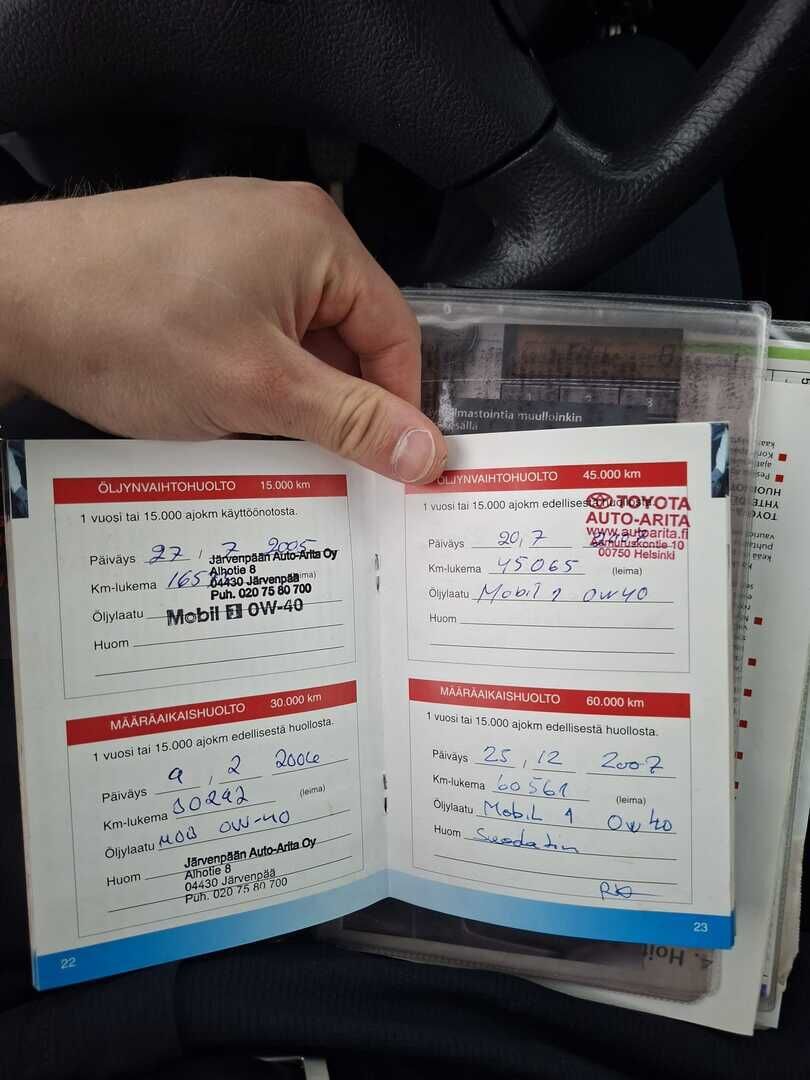 ÖLJYNVAIHTOHUOLTO 15.000 km
1 vuosi tai 15.000 ajokm käyttöönotosta.
Päiväys 27, 7 2005
Km-lukema (leima)
Öljylaatu
Huom
Järvenpään Auto-Arita Oy
Alhotie 8
04430 Järvenpää
Puh. 020 75 80 700
Mobil 1 0W-40
MÄÄRÄAIKAISHUOLTO 30.000 km
1 vuosi tai 15.000 ajokm edellisestä huollosta.
Päiväys 9, 2 2006
Km-lukema 30292 (leima)
Öljylaatu MOB 0W-40
Huom
Järvenpään Auto-Arita Oy
Alhotie 8
04430 Järvenpää
Puh. 020 75 80 700
22
ÖLJYNVAIHTOHUOLTO 45.000 km
1 vuosi tai 15.000 ajokm edellisestä huollosta.
Päiväys 20, 7
Km-lukema 45065 (leima)
Öljylaatu Mobil 1 0W40
Huom
TOYOTA
AUTO-ARITA
www.autoarita.fi
00750 Helsinki
MÄÄRÄAIKAISHUOLTO 60.000 km
1 vuosi tai 15.000 ajokm edellisestä huollosta.
Päiväys 25, 12 2007
Km-lukema 60561 (leima)
Öljylaatu Mobil 1 0W40
Huom
23
muulloinkin
4. Hoit